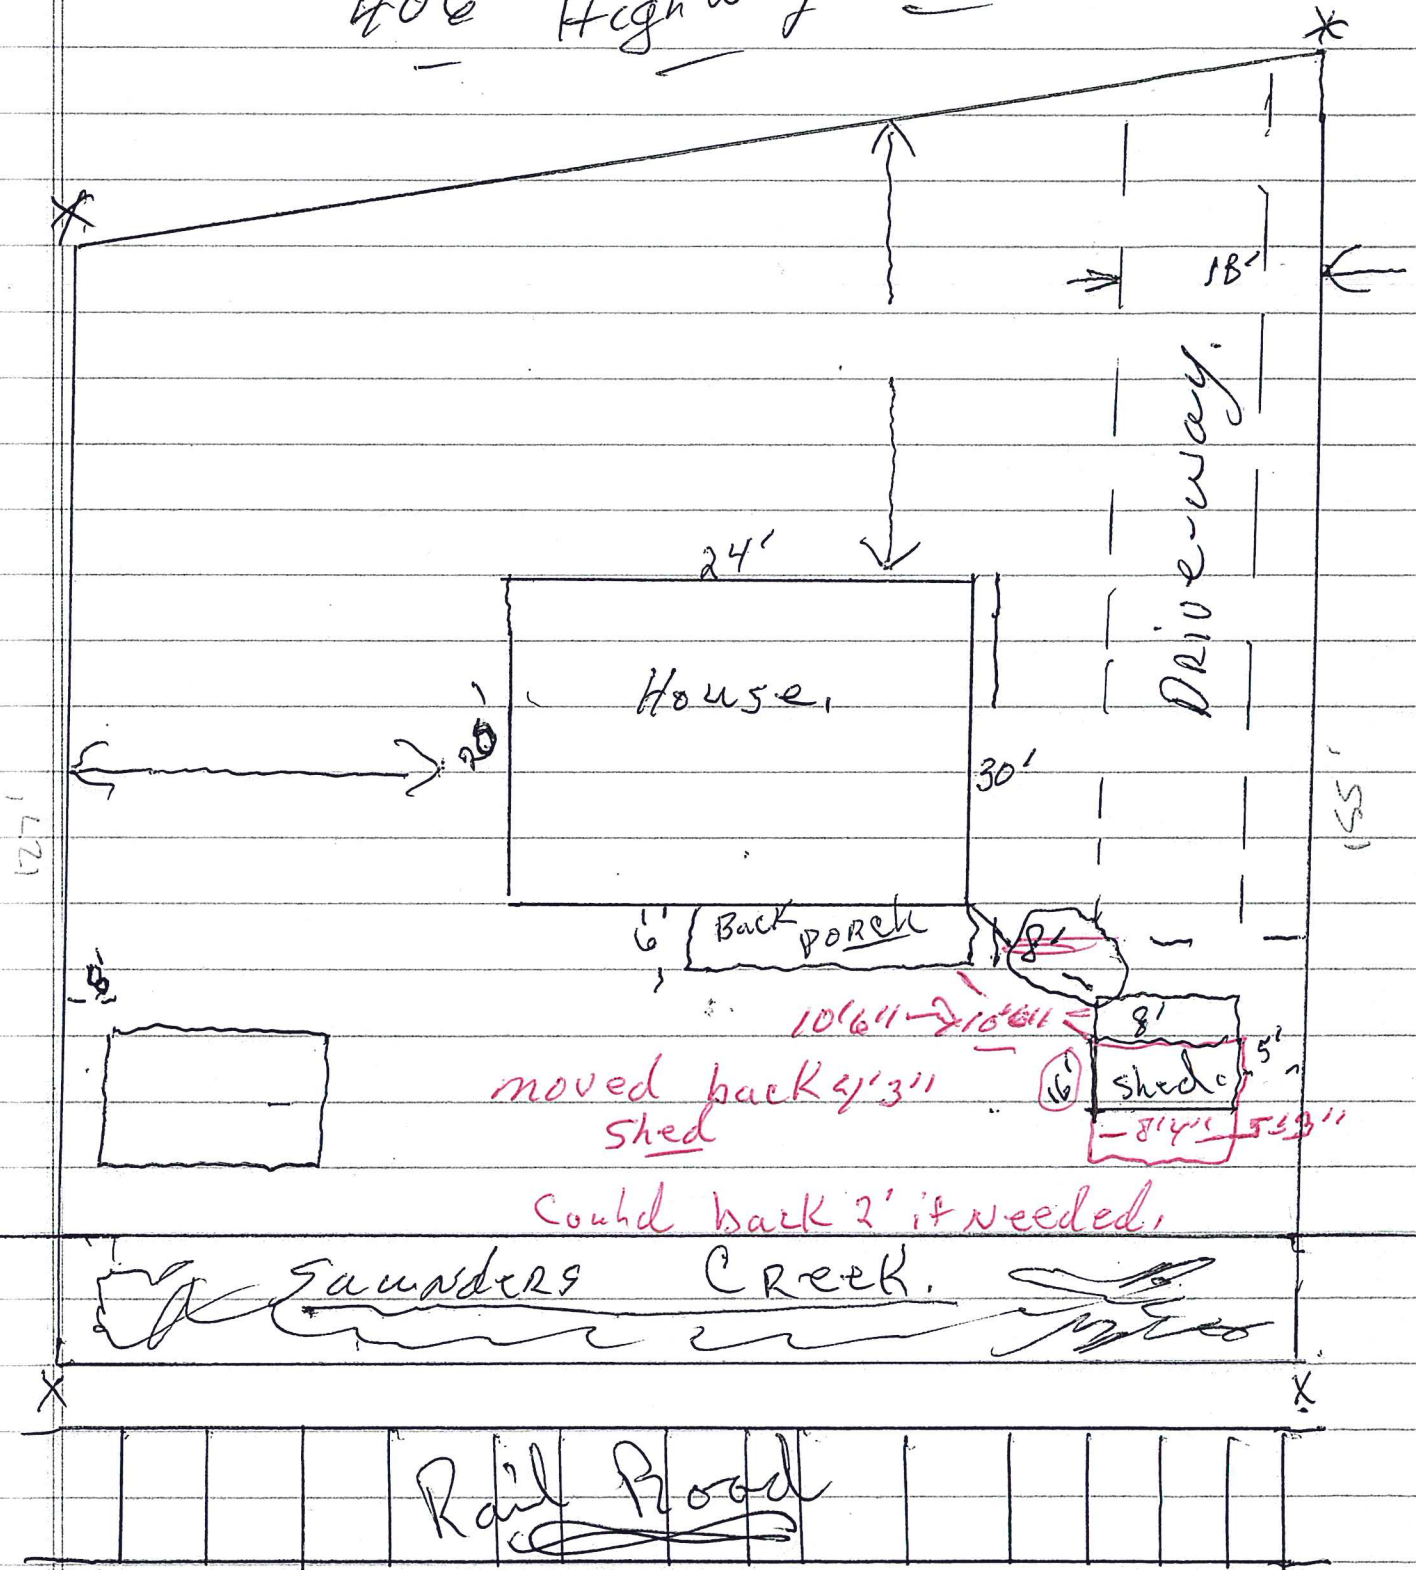 406 Highway
18'
Drive-way.
24'
House.
20'
30'
127'
155'
6'
Back porch
8'
8'
10'6" → 10'6"
8'
5'
moved back 4'3"
16'
shed
Shed
8'4" 5'3"
Could back 2' if needed.
Saunders Creek.
Rail Road